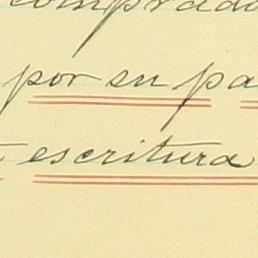 comprado
por su pa
escritura